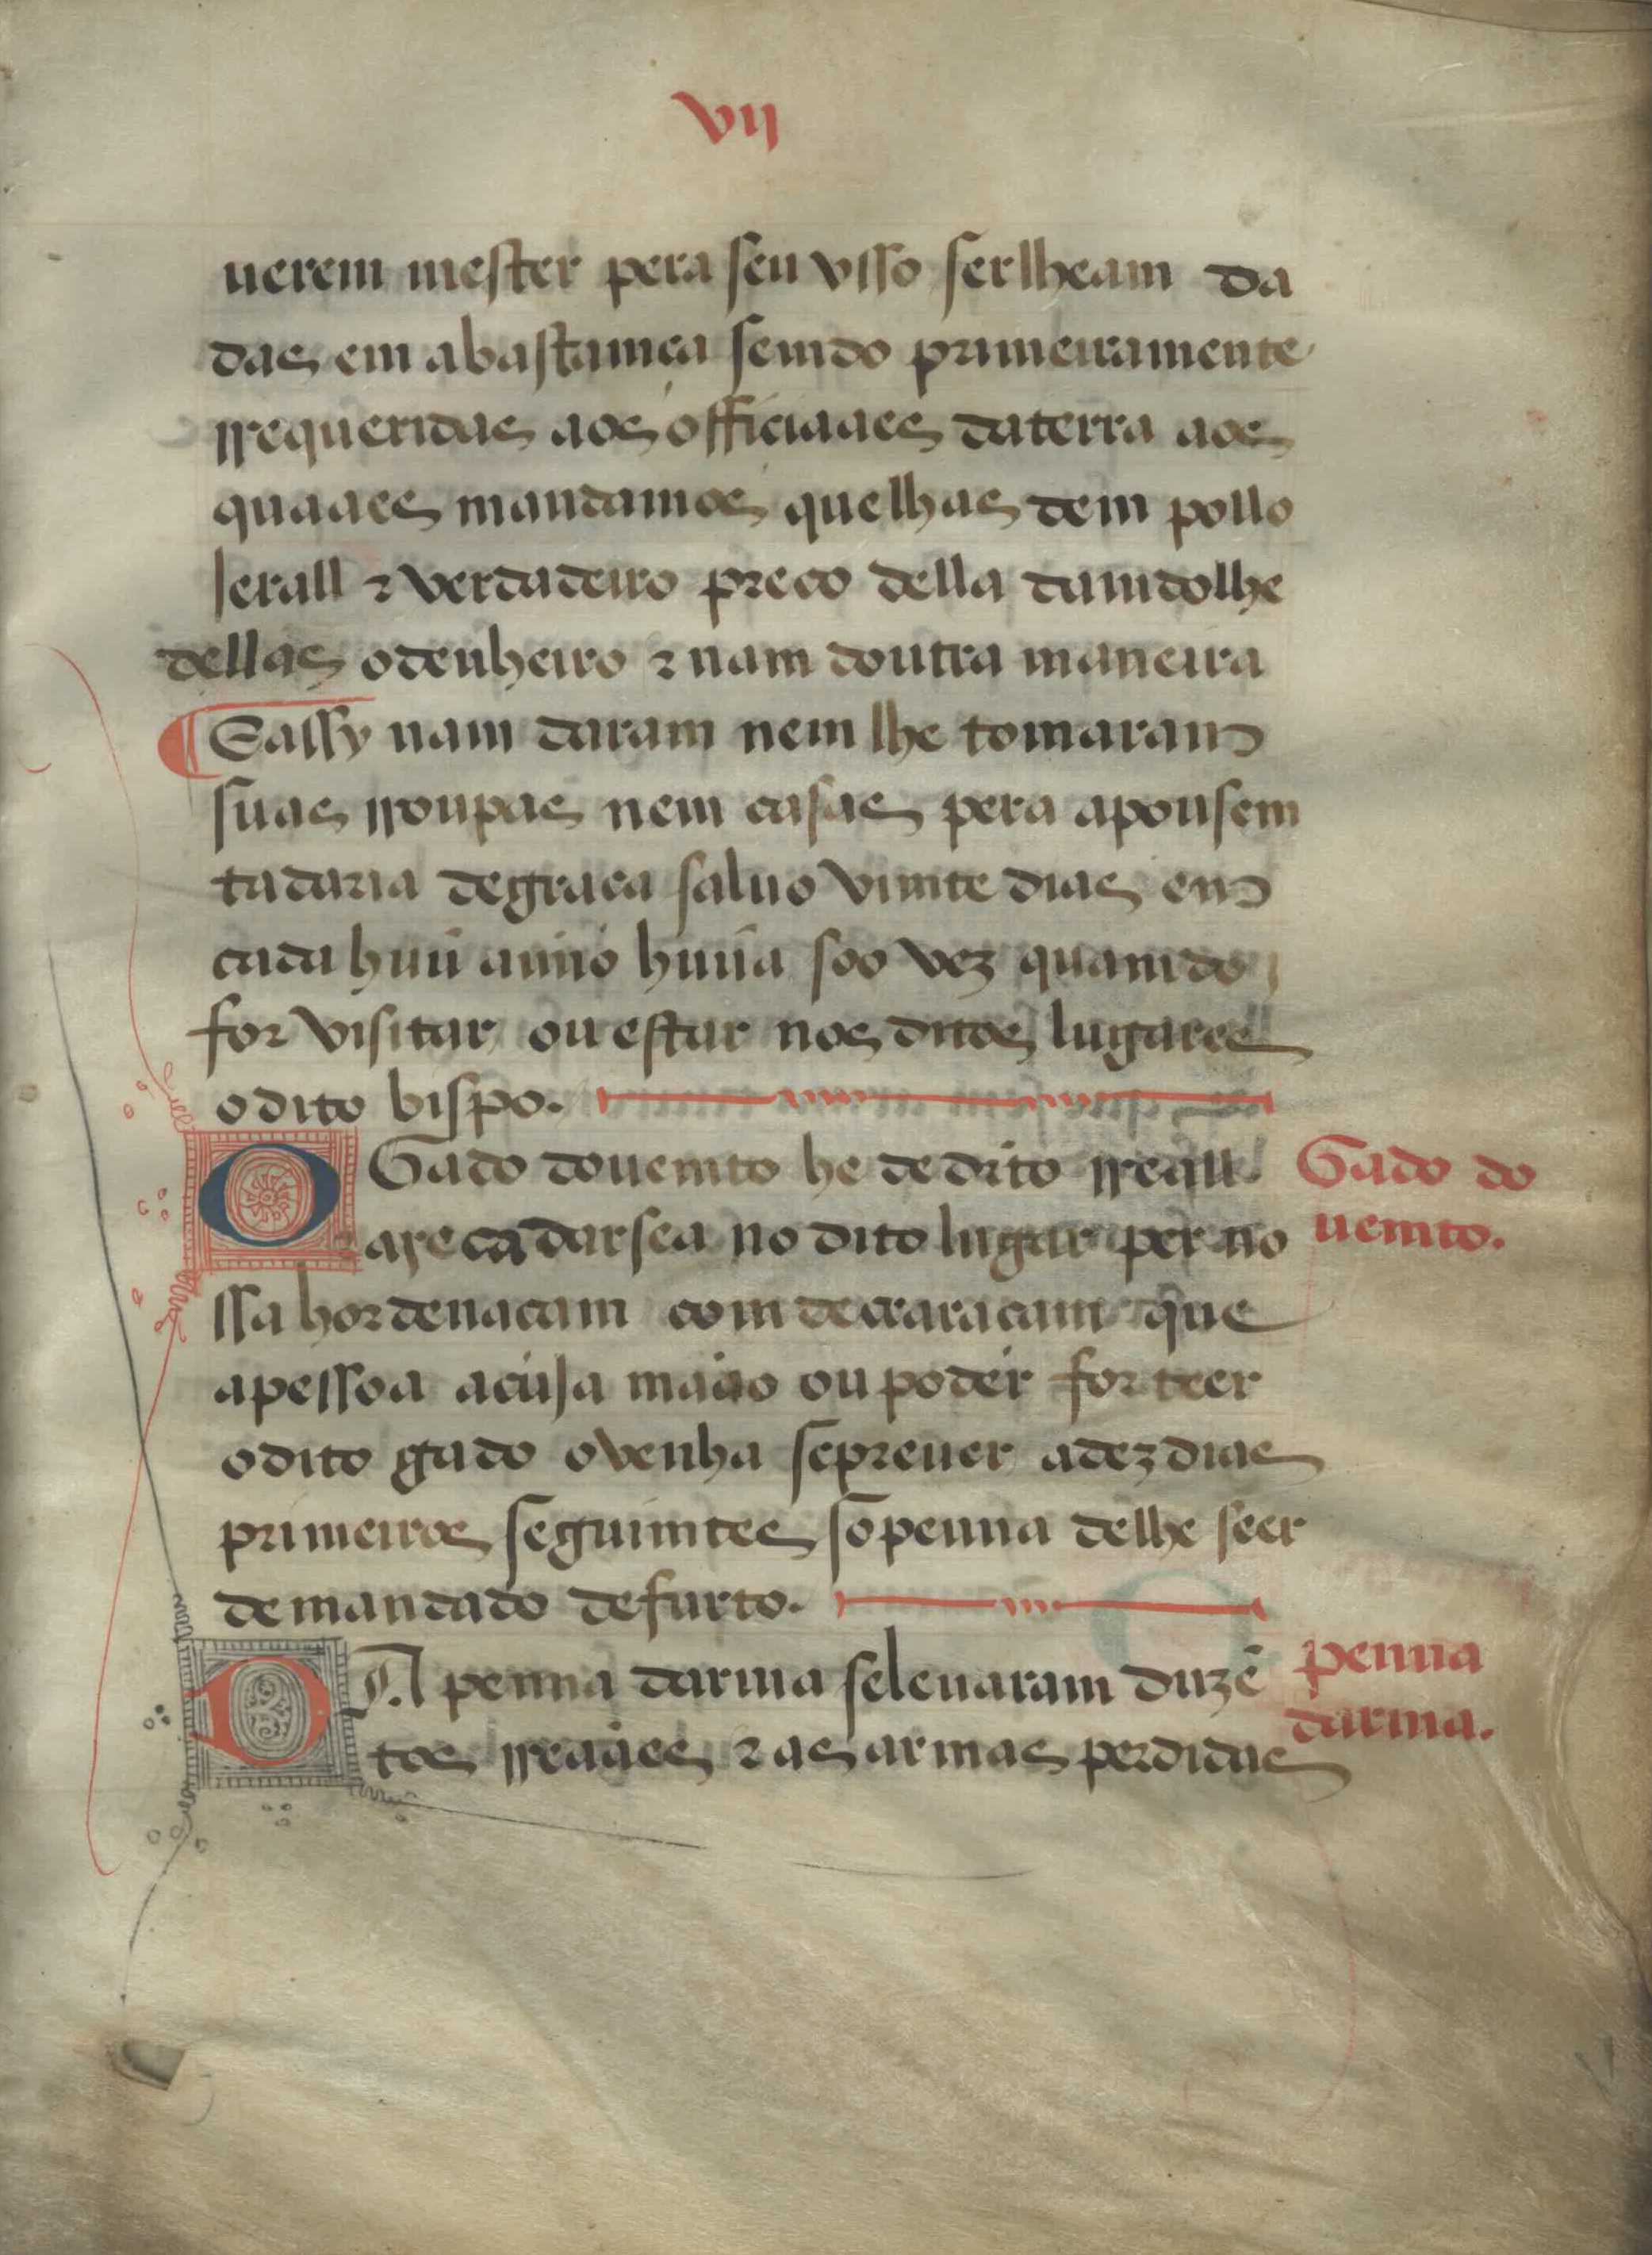 vij
uerem mester pera seu vsso serlheam da
das em abastamça semdo primeiramente
rrequeridas aos officiaaes daterra aos
quaaes mandamos quelhas dem pollo
jerall ⁊ verdadeiro preço della damdolhe
dellas odenheiro ⁊ nam doutra maneira
¶ E assy nam daram nem lhe tomaram
suas rroupas nem casas pera apousem
tadaria degraça saluo vimte dias em
cada huũ anno huũa soo vez quamdo
for visitar ou estar nos ditos lugares
odito bispo.
O Gado douemto he de dr̃to rreall
Gado do
uemto.
⁊ arecadarsea no dito lugar per no
ssa hordenaçam com decraraçam que
apessoa acuja maão ou poder for teer
odito gado o venha sepreuer adez dias
primeiros seguimtes sopenna delhe seer
demandado defurto.
D A penna darma seleuaram duzẽ
penna
darma.
tos rreaães ⁊ as armas perdidas